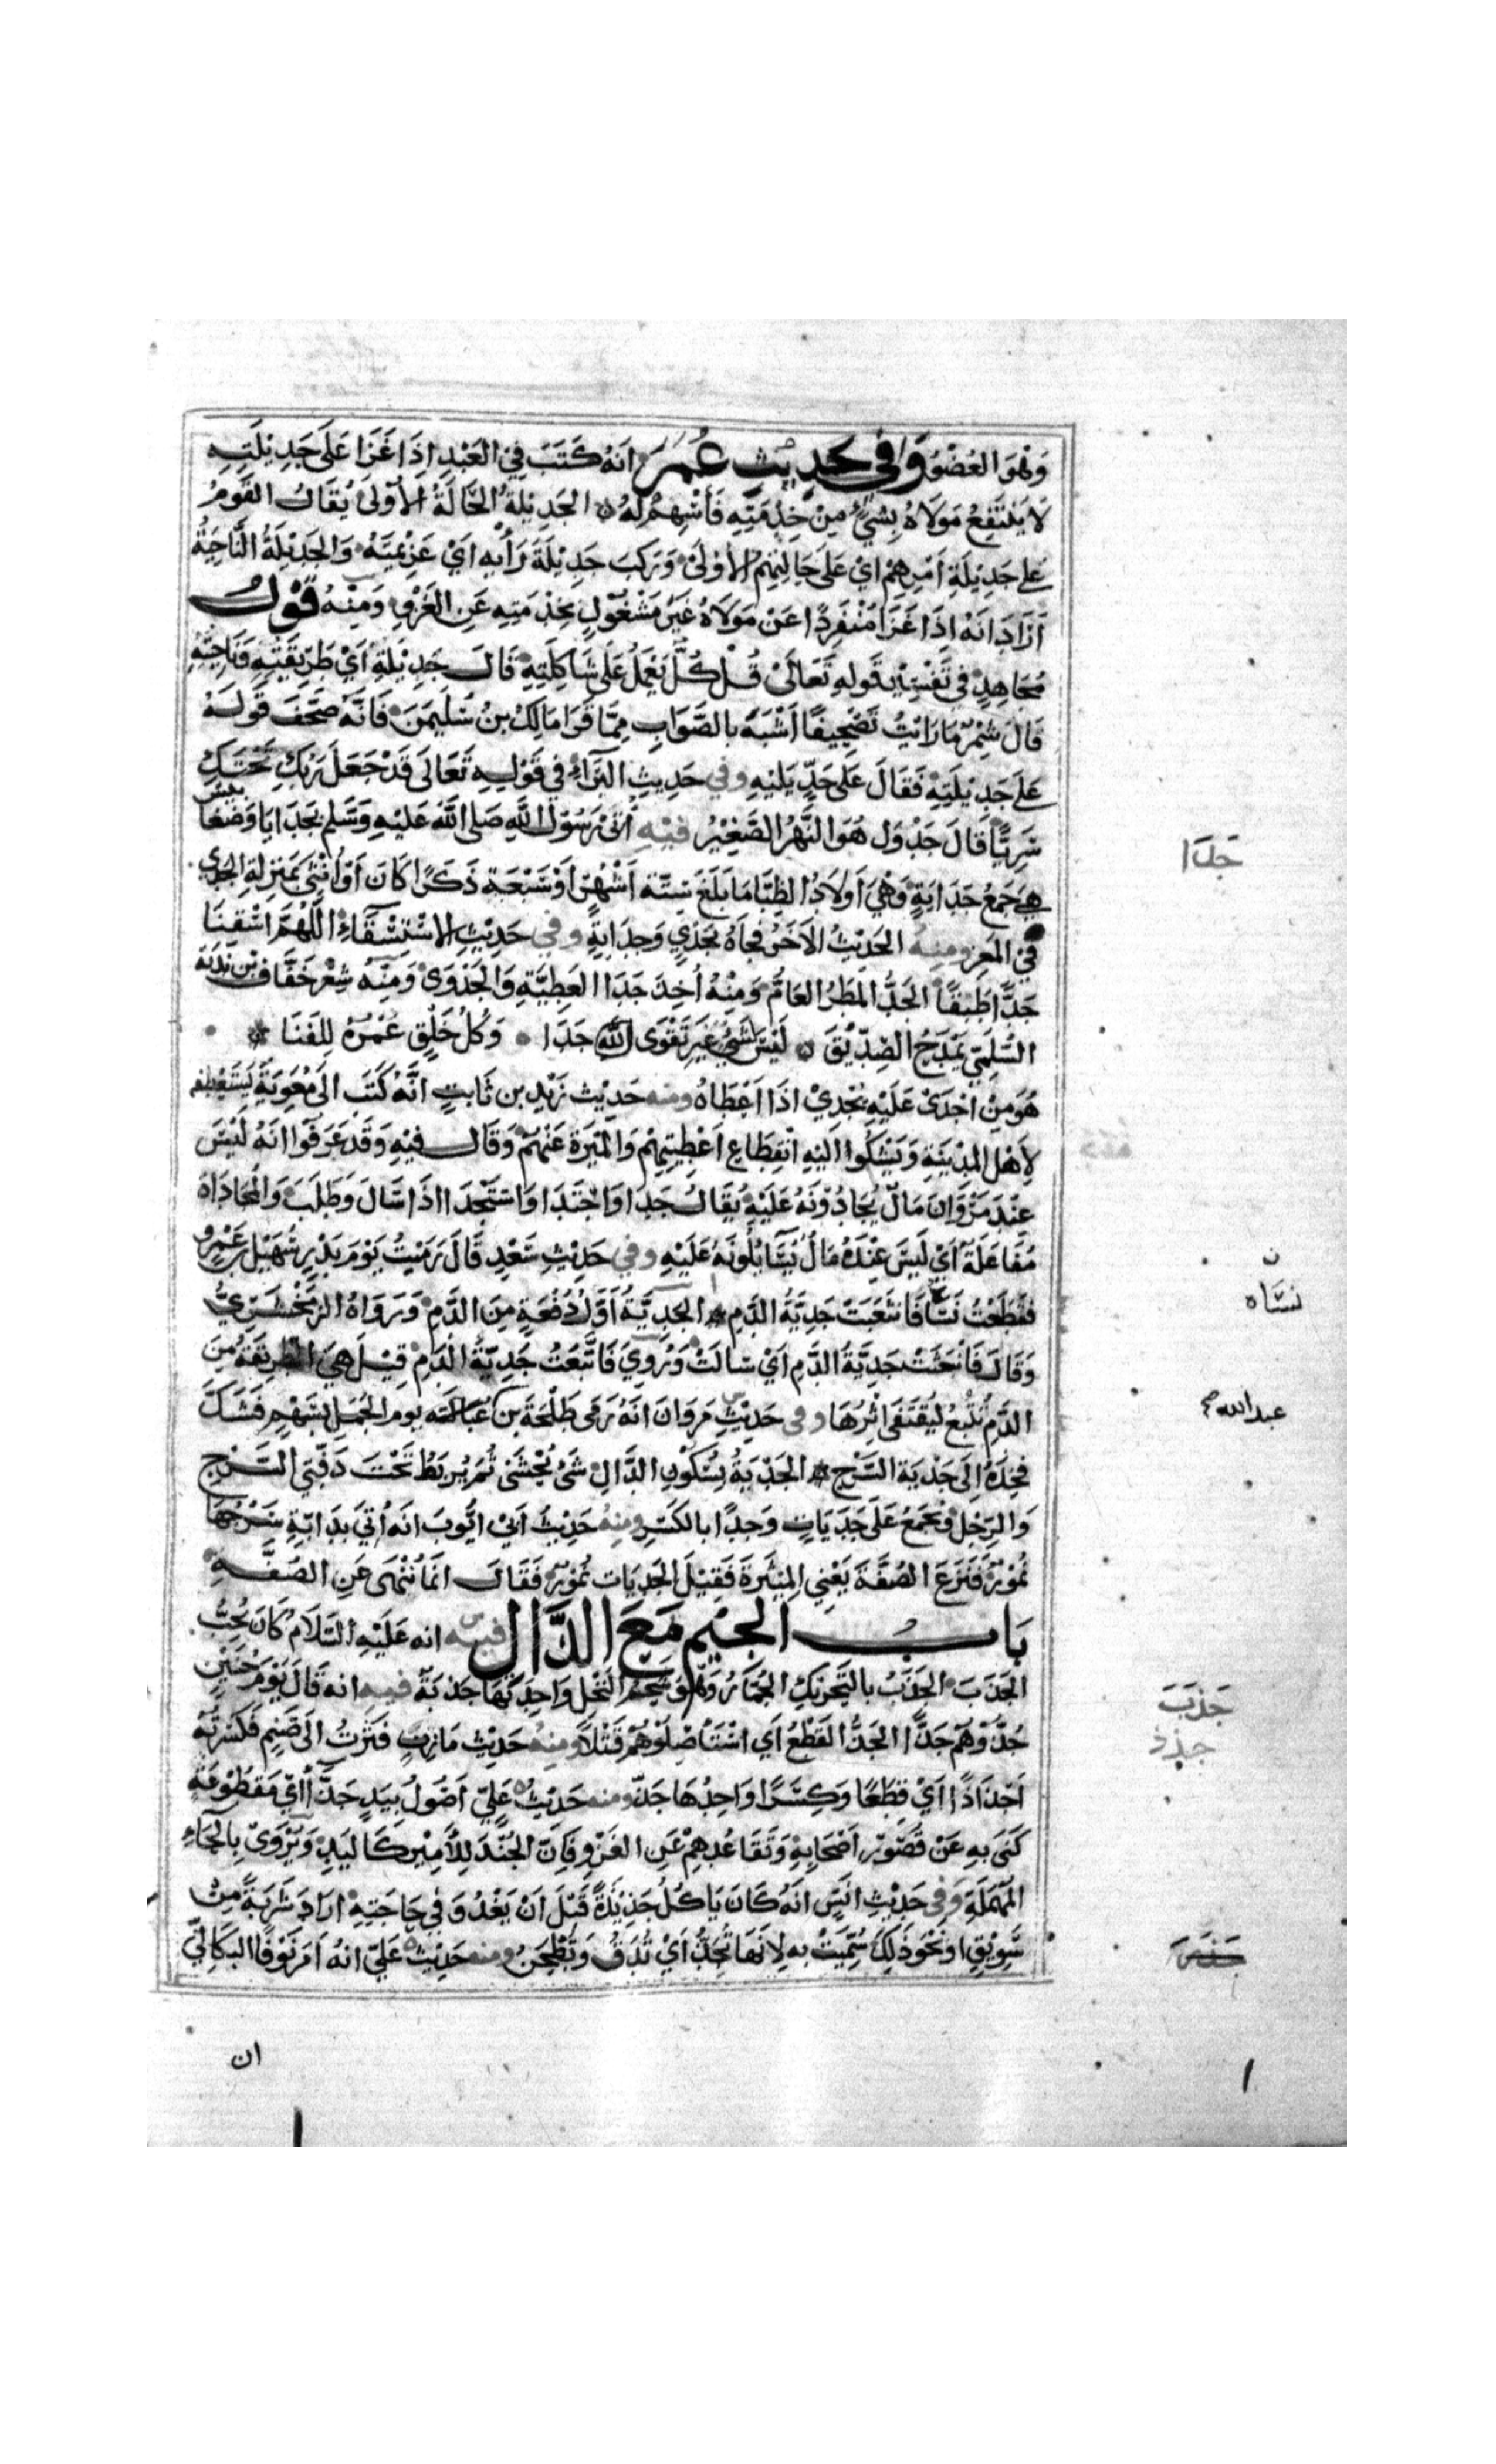 وَهُوَ العُضْوُ وَفِي حَدِيْثِ عُمَرَ انَهُ كَتَبَ فِي العَبْدِ اِذَا غَزَا عَلَى جَدِيْلَتِهِ
لَا يَنْتَفِعُ مَوْلَاهُ بِشَيْءٍ مِنْ خِدْمَتِهِ فَأَسْهِمْ لَهُ الجَدِيْلَةُ الحَالَةُ الأُوْلَى يُقَالُ القَوْمُ
عَلى جَدِيْلَةِ اَمْرِهِمْ اَيْ عَلَى حَالَتِهِمْ الأُوْلَى وَرَكِبَ جَدِيْلَةَ رَأْيِهِ اَيْ عَزِيْمَتَهُ وَالجَدِيْلَةُ النَّاحِيَةُ
اَرَادَ انَهُ اِذَا غَزَا مُنْفَرِدًا عَنْ مَوْلَاهُ غَيْرَ مَشْغُوْلٍ بِخِدْمَتِهِ عَنِ الغَزْوِ وَمِنْهُ قَوْلُ
مُجَاهِدٍ فِي تَفْسِيْرِ قَولِهِ تَعَالَى قُلْ كُلٌّ يَعْمَلُ عَلَى شَاكِلَتِهِ قَالَ جَدِيْلَةِ اَيْ طَرِيْقَتِهِ وَنَاحِيَتِهِ
قَالَ شِمْرٌ مَا رَاَيْتُ تَصْحِيفًا اَشْبَهَ بِالصَّوَابِ مِمَّا قَرَا مَالِكُ بنُ سُلَيْمَنَ فَانَّهُ صَحَّفَ قَولَهُ
عَلى جَدِيْلَتِهِ فَقَالَ عَلَى حَدِّ يَلِيْهِ وفي حَدِيثِ البَرَاءِ فِي قَوْلِهِ تَعَالَى قَدْ جَعَلَ رَبُّكِ تَحْتَكِ
سَرِيًّا قَالَ جَدْوَل هُوَ النَّهْرُ الصَّغِيْرُ فيْهِ اُتِيَ رَسُوْلُ اللهِ صَلى اللهُ عَلَيْهِ وَسَلم بِجَدَايَا وَضَغَابِيْسَ
هِيَ جَمْعُ جَدَايَةٍ وَهِيَ اَوْلَادُ الظِبَا مَا بَلَغَ سِتَّةَ اَشْهُرٍ اَوْ سَبْعَة ذَكَرًا كَانَ اَوْ اُنْثَى بِمَنزِلَةِ الجَدْي
فِي المَعزِ ومِنهُ الحَدِيْثُ الاخَرُ فجَاهُ بجَدْيٍ وَجَدَايةٍ وفي حَدِيْثِ الاسْتِسْقَاءِ اللَّهُمَّ اسْقِنَا
جَدًّا طَبَقًا الجَدُّ المَطَرُ العَامُّ وَمِنْهُ اُخِذَ جَدَا العَطِيَّةِ وَالجَدْوَى وَمِنْهُ شِعْر خَفَّاف بْنِ نَدْبَة
السُّلَمِيّ يَمْدَحُ الصِّدِّيْقَ لَيْسَ لِشَيْءٍ غَيْرِ تَقْوَى اللهِ جَدَا وَكُلُّ خَلْقٍ عُمْرُهُ لِلفَنَا
هُوَ مِنْ اَجْدَى عَلَيْهِ يُجْدِيْ اذَا اَعْطَاهُ ومنه حَدِيْث زَيْدِ بن ثَابِتٍ انَّهُ كَتَبَ الَى مُعٰوِيَةَ يَسْتَعْطِفُهُ
لِاَهْلِ المَدِيْنَةِ وَيَشْكُوا اِلَيْهِ انْقِطَاعِ اَعْطِيَتِهِمْ وَالمِيْرَةَ عَنْهُمْ وَقَالَ فِيْهِ وَقَدْ عَرَفُوا انَهُ لَيْسَ
عِنْدَ مَرْوَانَ مَالٌ يُجَادُوْنَهُ عَلَيْهِ يُقَالُ جَدَا وَاجْتَدَا وَاسْتَجْدَا اذَا سَالَ وَطَلَبَ وَالمُجَادَاة
مُفَاعَلَةٌ اَيْ لَيْسَ عِنْدَهُ مَالٌ يُسَائِلُونَهُ عَلَيْهِ وفي حَدِيْثِ سَعْدٍ قَالَ رَمَيْتُ يَوْمَ بَدْرٍ سُهَيْلَ بن عَمْرٍو
فَقَطَعْتُ نَسَاهُ فَانثَعَبَتْ جَدِيَّةُ الدَّمِ الجَدِيَّةُ اَوَّلُ دُفْعَةٍ مِنَ الدَّمِ وَرَوَاهُ الزَّمَخْشَرِيُّ
وَقَالَ فَانْحَتَتْ جَدِيَّةُ الدَّمِ اَيْ سَالَتْ وَرُوِيَ فَاتَّبَعَتُ جَدِيَّةُ الدَمِ قِيْلَ هِيَ الطَّرِيْقَةُ مِنَ
الدَّمِ تُتْبَعُ لِيُقْتَفَى اثْرُهَا وفي حَدِيْثِ مَرْوَانَ انَهُ رَمَى طَلْحَةَ بن عُبَيْدالله يوم الجَمَلِ بِسَهْمٍ فَشَكَّ
فَخِذَهُ اِلَى جَدْيَةِ السَّرْجِ الجَدْيَةُ بِسُكُوْنِ الدَّالِ شَيْءٌ يُحْشَى ثُمَ يُربَطُ تَحْتَ دَفَّتي السَّرْجِ
وَالرَّحْلِ وتُجْمَعُ عَلَى جَدَيَاتٍ وَجِدًا بِالكَسْرِ ومِنهُ حَدِيْثُ اَبِيْ ايُّوبَ انَهُ اُتِيَ بِدَابَّةٍ سَرْجُهَا
نُمُوْرٌ فَنَزَعَ الصُفَّةَ يَعْنِي المِيْثَرَةَ فَقِيْلَ الجَدَيَات نُمُوْرٌ فَقَالَ انَمَا يُنْهَى عَنِ الصُفَّةِ
بَابُ الجِيْمِ مَعَ الدَّالِ فيه انه عَلَيْهِ السَّلَامُ كَانَ يُحِبُّ
الجَذَبَ الجَذَبُ بِالتَّحْرِيْكِ الجُمَّارُ وَهُوَ شَحْمُ النَّخْلِ وَاحِدَتُهَا جَذَبَةٌ فيه انه قَالَ يَوْمَ حُنَيْنٍ
جُذُّوْهُمْ جَذًّا الجَذُّ القَطْعُ اَي اسْتَأْصِلُوْهُمْ قَتْلًا ومِنْهُ حَدِيْث مَازِنٍ فَثُرْتُ الَى صَنَمٍ فَكَسَرْتُهُ
اَجْذَاذًا اَيْ قِطَعًا وَكِسَرًا وَاحِدُهَا جَذّ ومنه حَدِيْثُ عَلِيّ اَصُوْلُ بِيَدٍ جَذَّا ايْ مَقطُوْعَةٍ
كَنَى بِهِ عَنْ قُصُوْر اَصْحَابِهِ وَتَقَاعُدِهِمْ عَنِ الغَزْوِ فَاِنَّ الجُنْدَ لِلأَمِيْرِ كَاليَدِ وَيُرْوَى بِالحَاءِ
المُهمَلَةِ وَفي حَدِيْثِ انَسٍ انَهُ كَانَ يَاكُلُ جَذِيْذَةً قَبْلَ اَنْ يَغْدُوَ فِي حَاجَتِهِ ارَادَ شَرْبَةً مِنْ
سَوِيْقٍ اونَحْوَ ذَلِكَ سُمِّيَتْ بِهِ لِانَهَا تُجَذُّ اَيْ تُدَقُّ وَتُطْحَنُ ومنه حَدِيْث عَلِيّ انهُ اَمَرَ نَوْفًا البَكَالِيَّ
ان
جَدَا
نَسَاه
عبدالله
جَذَبَ
جذذ